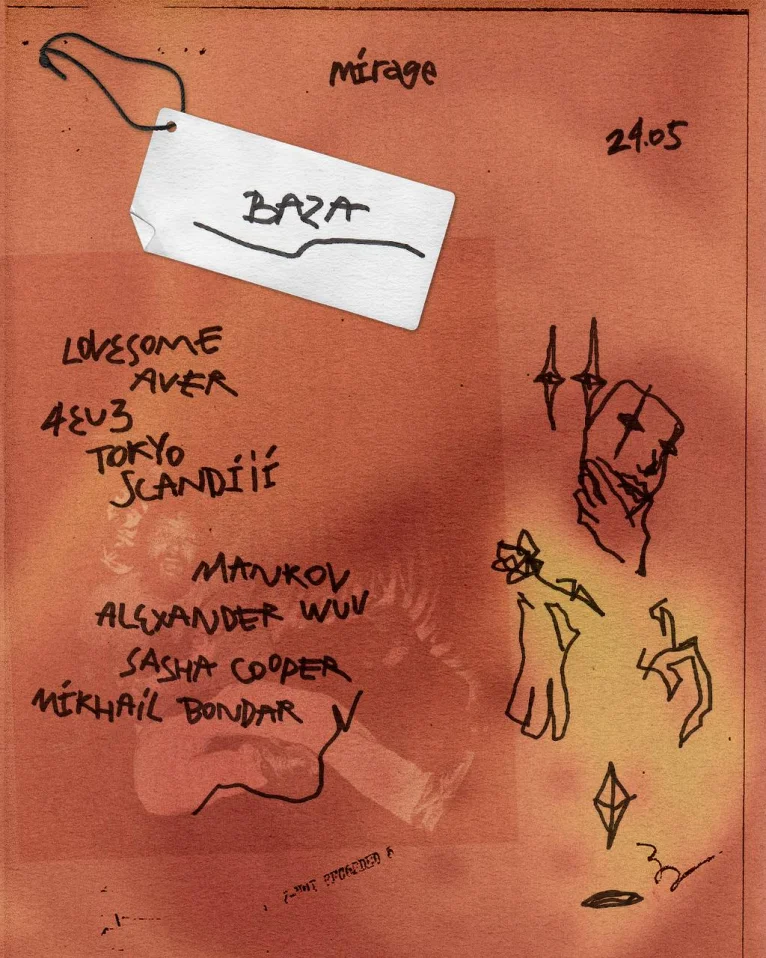 mirage
24.05
BAZA
LOVESOME
AVER
4EU3
TOKYO
SCANDÍÍÍ
MANKOV
ALEXANDER WUV
SASHA COOPER
MÍKHAÍL BONDAR
RECORDED